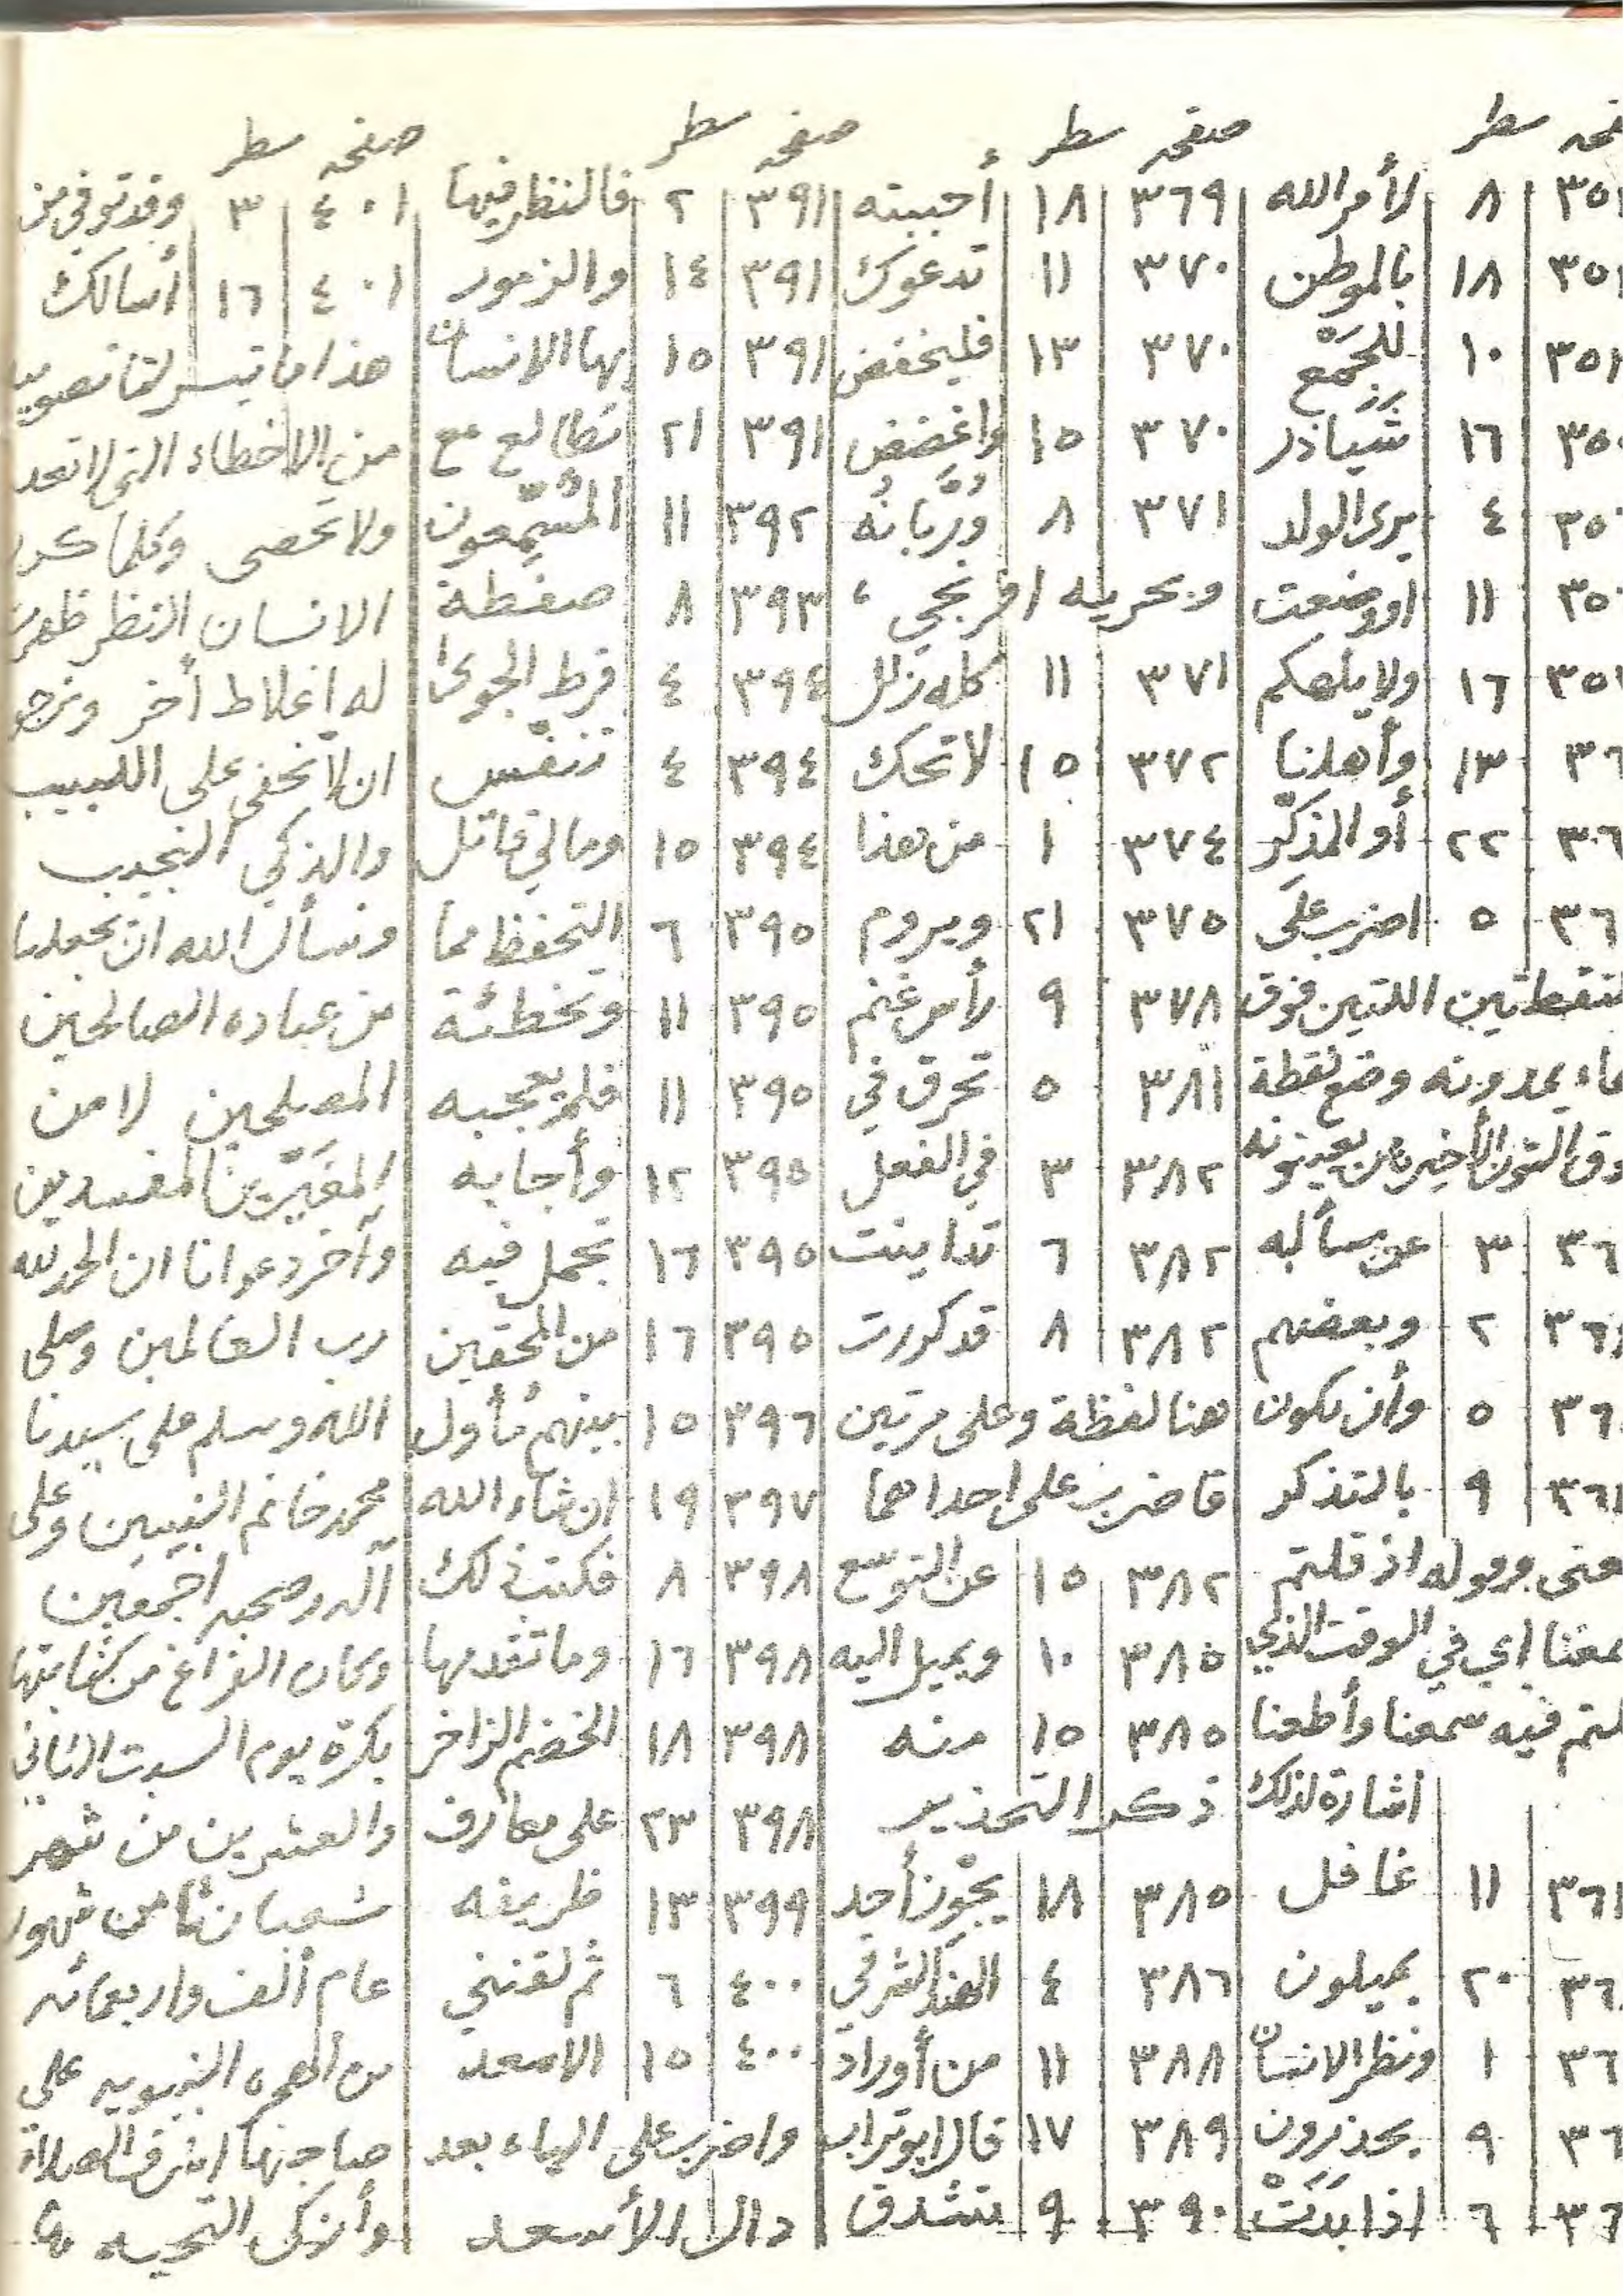 صفحه سطر
٣٥١ ٨ لأمر الله
٣٥١ ١٨ بالموطن
٣٥١ ١٠ للجمع
١٦ شياذر
٤ يرى الولد
١١ اووضعت
٣٥١ ١٦ ولا يلهكم
١٣ وأهلنا
٢٢ أو المذكّر
٥ اضرب على
النقطتين اللتين فوق
وضع نقطة
٣ عن
٢ وبعضهم
٥ وأن تكون
٩ بالتذكر
اذ قلتم
اي في الوقت الذي
قلتم فيه سمعنا وأطعنا
اشارة لذلك
١١ غافل
٢٠ يميلون
١ ونظر الانسان
٩ يحذرون
٦ اذا بدت
صفحه سطر
٣٦٩ ١٨ أجبته
٣٧٠ ١١ تدعوك
٣٧٠ ١٣ فليخفض
٣٧٠ ١٥ واغضض
٣٧١ ٨ ورُبّانُه
وبحريه افرنجي ،
٣٧١ ١١ كله زلل
٣٧٢ ١٥ لا تحك
٣٧٤ ١ من هذا
٣٧٥ ٢١ ويروم
٣٧٨ ٩ رأس غنم
٣٨١ ٥ تحرق في
٣٨٢ ٣ في الفعل
٣٨٢ ٦ تداينت
٣٨٢ ٨ قد كررت
هنا لفظة وعلى مرتين
فاضرب على احداهما
٣٨٢ ١٥ عن التوسع
٣٨٥ ١٠ ويميل اليه
٣٨٥ ١٥ منه
ذكر التحذير
٣٨٥ ١٨ يجوز أحد
٣٨٦ ٤ الهند الشرقي
٣٨٨ ١١ من أوراد
٣٨٩ ١٧ قال ابوتراب
٣٩٠ ٩ تتشدق
صفحه سطر
٣٩١ ٢ فالنظر فيها
٣٩١ ١٤ والزمور
٣٩١ ١٥ بها الانسان
٣٩١ ٢١ تطالع مع
٣٩٢ ١١ المُتَسَمِّعون
٣٩٣ ٨ صفطة
٣٩٤ ٤ فرط الجوى
٣٩٤ ٤ تنفّس
٣٩٤ ١٥ ومالي قاتل
٣٩٥ ٦ التحفظ مما
٣٩٥ ١١ وتخطئة
٣٩٥ ١١ فلم يعجبه
٣٩٥ ١٢ وأجابه
٣٩٥ ١٦ تجمل فيه
٣٩٥ ١٦ من المحقين
٣٩٦ ١٥ بينهم مُأول
٣٩٧ ١٩ ان شاء الله
٣٩٨ ٨ فكتب ذلك
٣٩٨ ١٦ وما تقدمها
٣٩٨ ١٨ الخضم الزاخر
٣٩٨ ٢٣ على معارف
٣٩٩ ١٣ ظريفه
٤٠٠ ٦ ثم لقنني
٤٠٠ ١٥ الاسعد
واضرب على الياء بعد
دال الأسعد
صفحه سطر
٤٠١ ٣ وقد توفي من
٤٠١ ١٦ أسالك
هذا ما تيسر لنا تصويبه
من الاخطاء التي لا تعد
ولا تحصى وكلما كرر
الانسان النظر ظهرت
له اغلاط أخر ونرجو
ان لا تخفى على اللبيب
والذكي النجيب
ونسأل الله ان يجعلنا
من عباده الصالحين
المصلحين لا من
المغيّرين المفسدين
وآخر دعوانا ان الحمد لله
رب العالمين وصلى
الله وسلم على سيدنا
محمد خاتم النبيين وعلى
آله وصحبه اجمعين
وكان الفراغ من كتابتها
بكرة يوم السبت الثاني
والعشرين من شهر
شعبان ثامن شهور
عام ألف واربعمائه
من الهجره النبويه على
صاحبها اشرف الصلاة
وأزكى التحيه